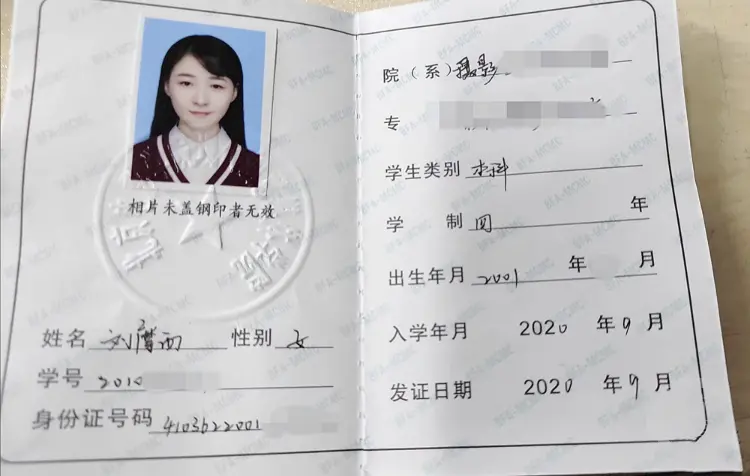 相片未盖钢印者无效
姓名 刘 西 性别 女
学号 2010
身份证号码 4103622001
院（系） 摄影
专
学生类别 本科
学 制 四 年
出生年月 2001 年 月
入学年月 2020 年 9 月
发证日期 2020 年 9 月
BFA-MCMC